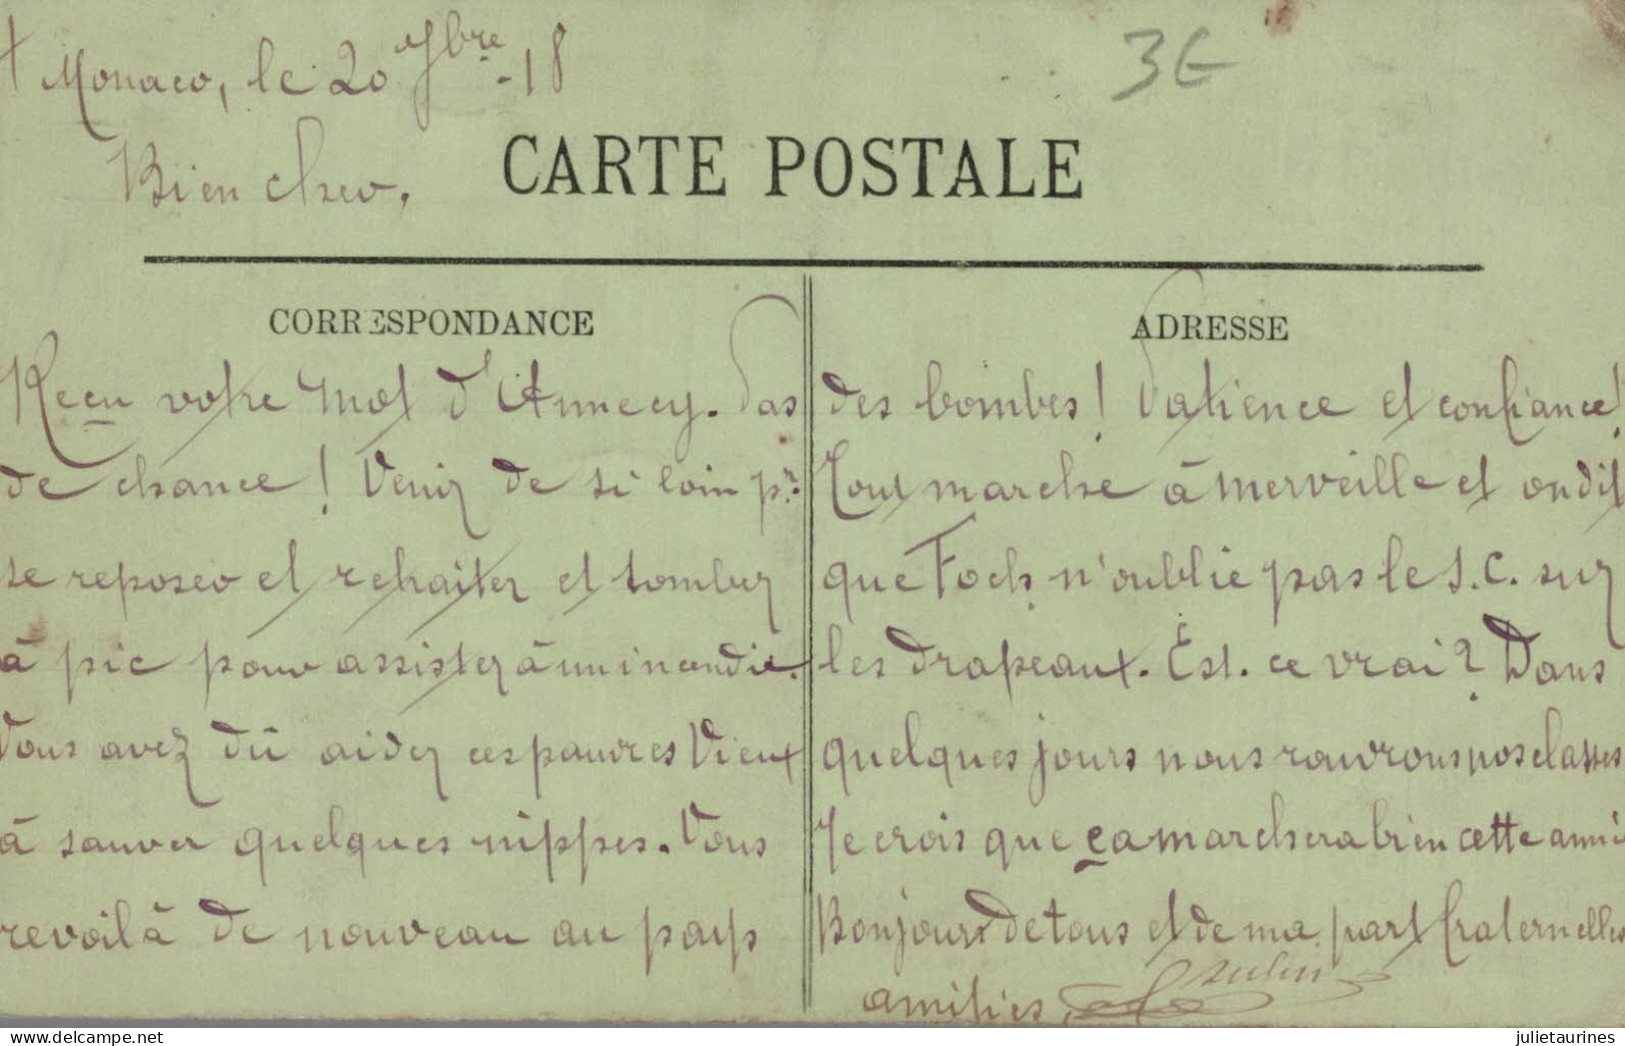 + Monaco, le 20 7bre - 18
3 €
Bien cher,
CARTE POSTALE
CORRESPONDANCE
Reçu votre mot d'Annecy. Pas
de chance ! Venir de si loin pr.
se reposer et retraiter et tomber
à pic pour assister à un incendie.
Vous avez dû aider ces pauvres Vieux
à sauver quelques nippes. Vous
revoilà de nouveau au pays
ADRESSE
des bombes ! Patience et confiance !
Tout marche à merveille et on dit
que Foch n'oublie pas le S.C. sur
les drapeaux. Est-ce vrai ? Dans
quelques jours nous rouvrons nos classes
Je crois que ça marchera bien cette anné
Bonjours de tous et de ma part fraternelles
amitiés.
julietaurines